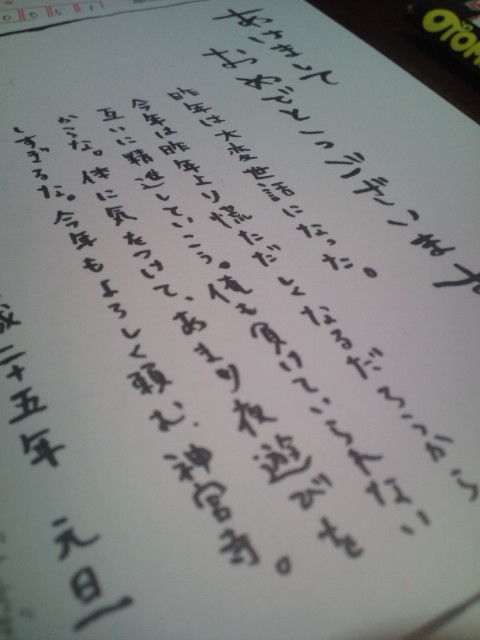 あけまして
おめでとうございます
昨年は大変世話になった。
今年は昨年より慌ただしくなるだろうから
互いに精進していこう。俺も負けていられない
からな。体に気をつけて、あまり夜遊びを
しすぎるな。今年もよろしく頼む、神宮寺。
成二十五年 元旦
OTOM